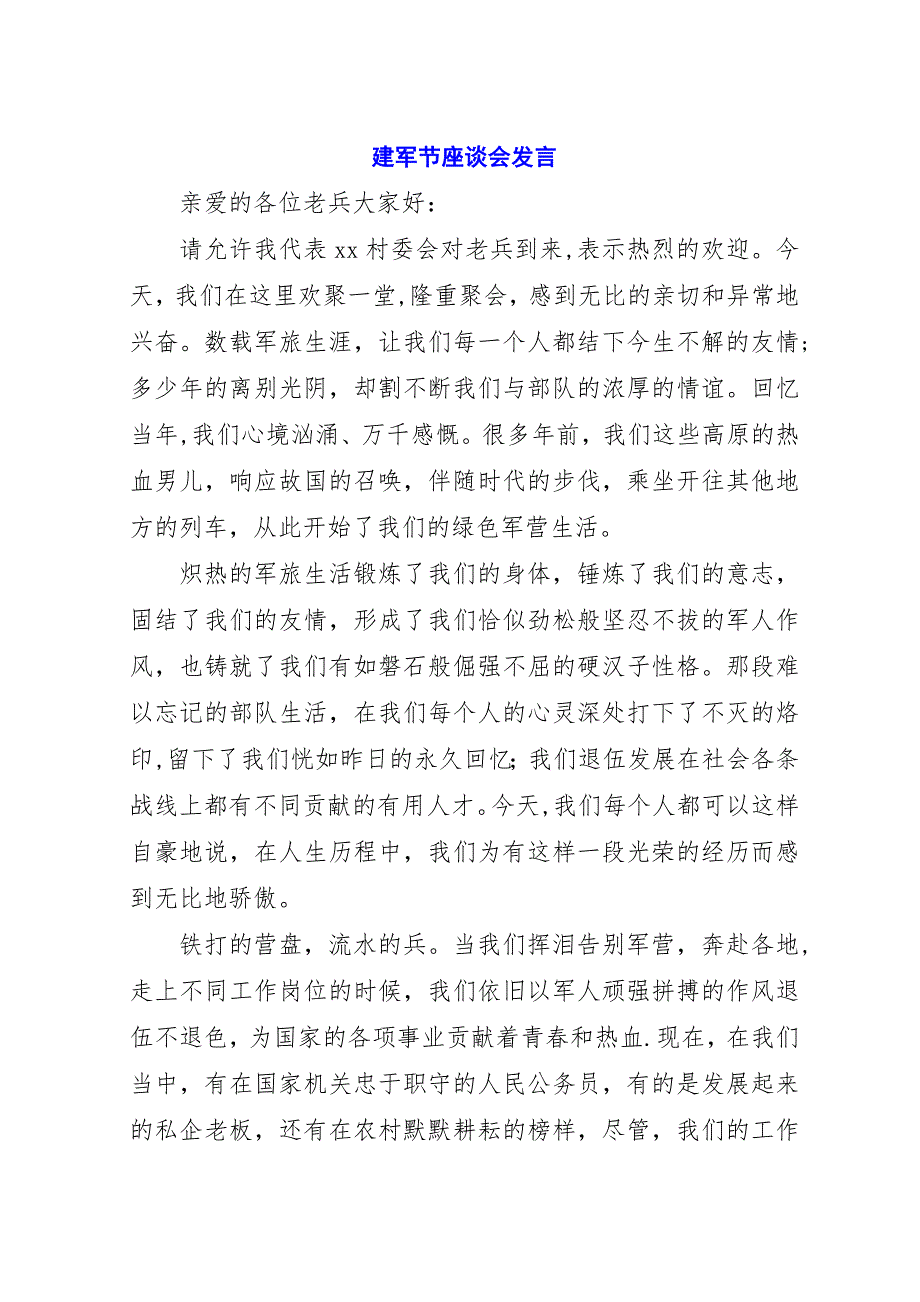 建军节座谈会发言
亲爱的各位老兵大家好：
请允许我代表 xx 村委会对老兵到来,表示热烈的欢迎。今
天，我们在这里欢聚一堂,隆重聚会，感到无比的亲切和异常地
兴奋。数载军旅生涯，让我们每一个人都结下今生不解的友情；
多少年的离别光阴，却割不断我们与部队的浓厚的情谊。回忆
当年,我们心境汹涌、万千感慨。很多年前，我们这些高原的热
血男儿，响应故国的召唤，伴随时代的步伐，乘坐开往其他地
方的列车，从此开始了我们的绿色军营生活。
炽热的军旅生活锻炼了我们的身体，锤炼了我们的意志，
固结了我们的友情，形成了我们恰似劲松般坚忍不拔的军人作
风，也铸就了我们有如磐石般倔强不屈的硬汉子性格。那段难
以忘记的部队生活，在我们每个人的心灵深处打下了不灭的烙
印,留下了我们恍如昨日的永久回忆；我们退伍发展在社会各条
战线上都有不同贡献的有用人才。今天,我们每个人都可以这样
自豪地说，在人生历程中，我们为有这样一段光荣的经历而感
到无比地骄傲。
铁打的营盘，流水的兵。当我们挥泪告别军营，奔赴各地，
走上不同工作岗位的时候，我们依旧以军人顽强拼搏的作风退
伍不退色，为国家的各项事业贡献着青春和热血.现在，在我们
当中，有在国家机关忠于职守的人民公务员，有的是发展起来
的私企老板，还有在农村默默耕耘的榜样，尽管，我们的工作